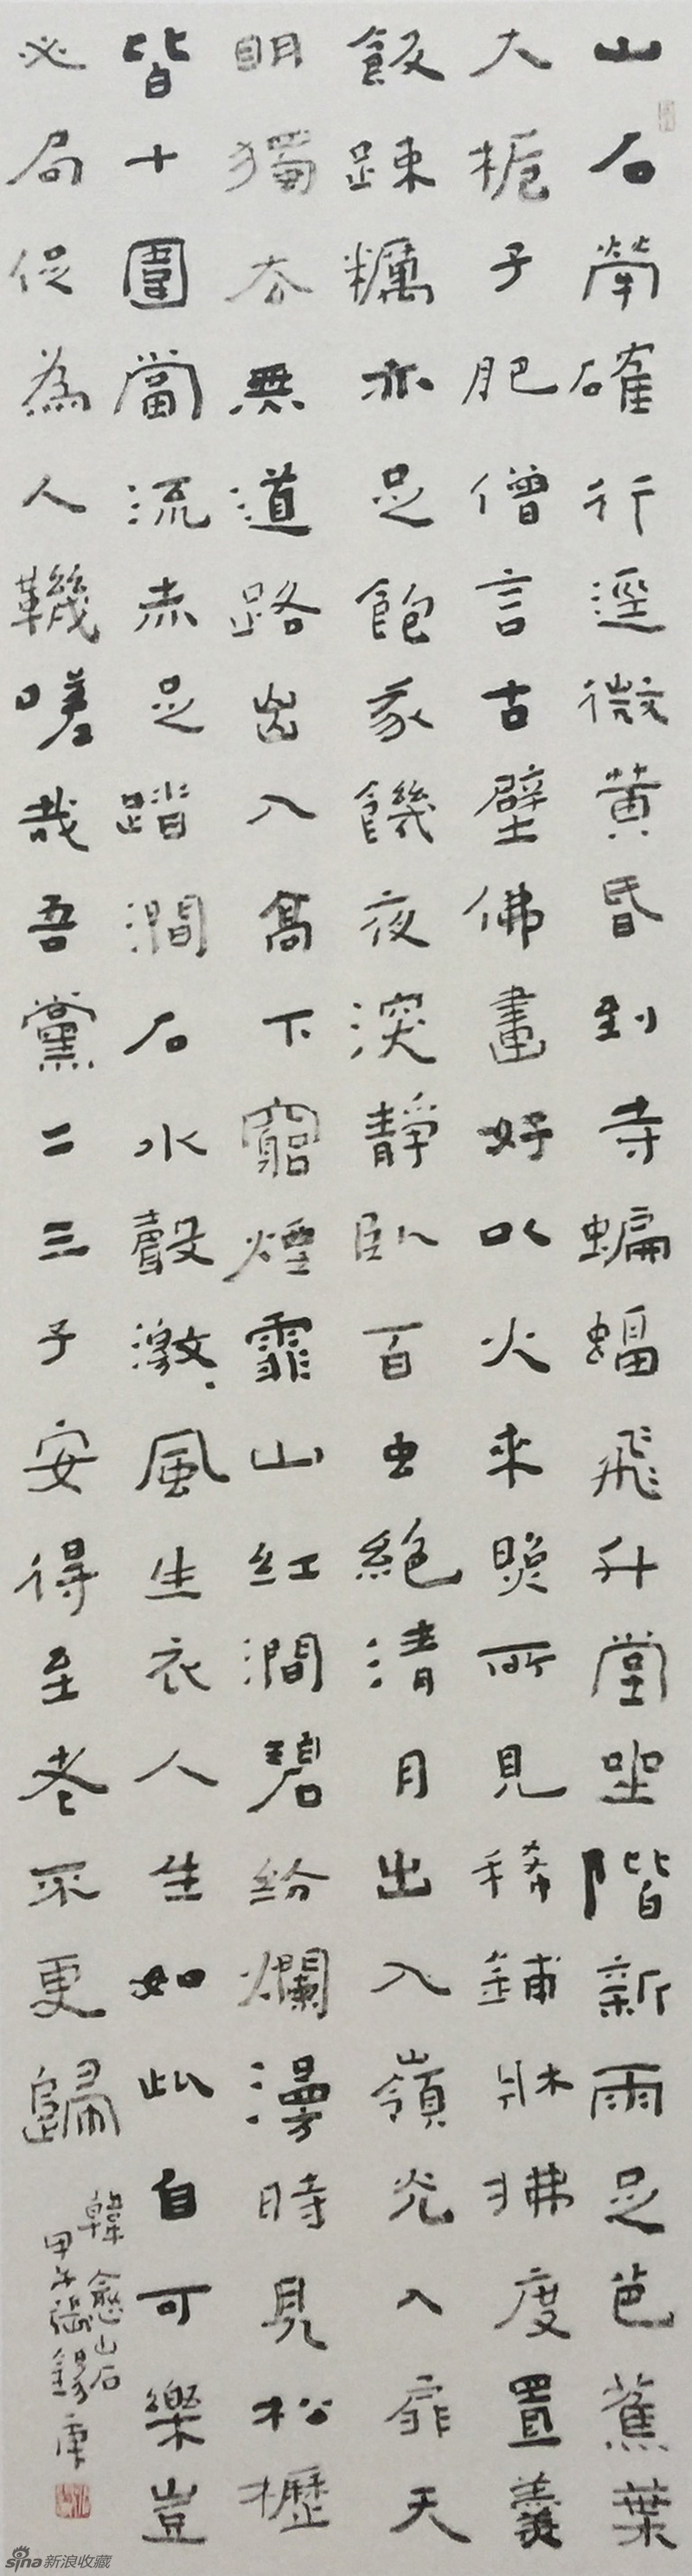 山石犖確行逕微黄昏到寺蝙蝠飛升堂坐階新雨足芭蕉葉
大梔子肥僧言古壁佛畫好以火來照所見稀鋪牀拂度置羹
飯踈糲亦足飽我饑夜深靜臥百虫絕清月出入嶺光入扉天
明獨去無道路出入高下窮煙霏山紅澗碧紛爛漫時見松櫪
皆十圍當流赤足踏澗石水聲激激風生衣人生如此自可樂豈
必局促為人鞿嗟哉吾黨二三子安得至老不更歸
韓愈山石
甲午張錫庚
sina新浪收藏